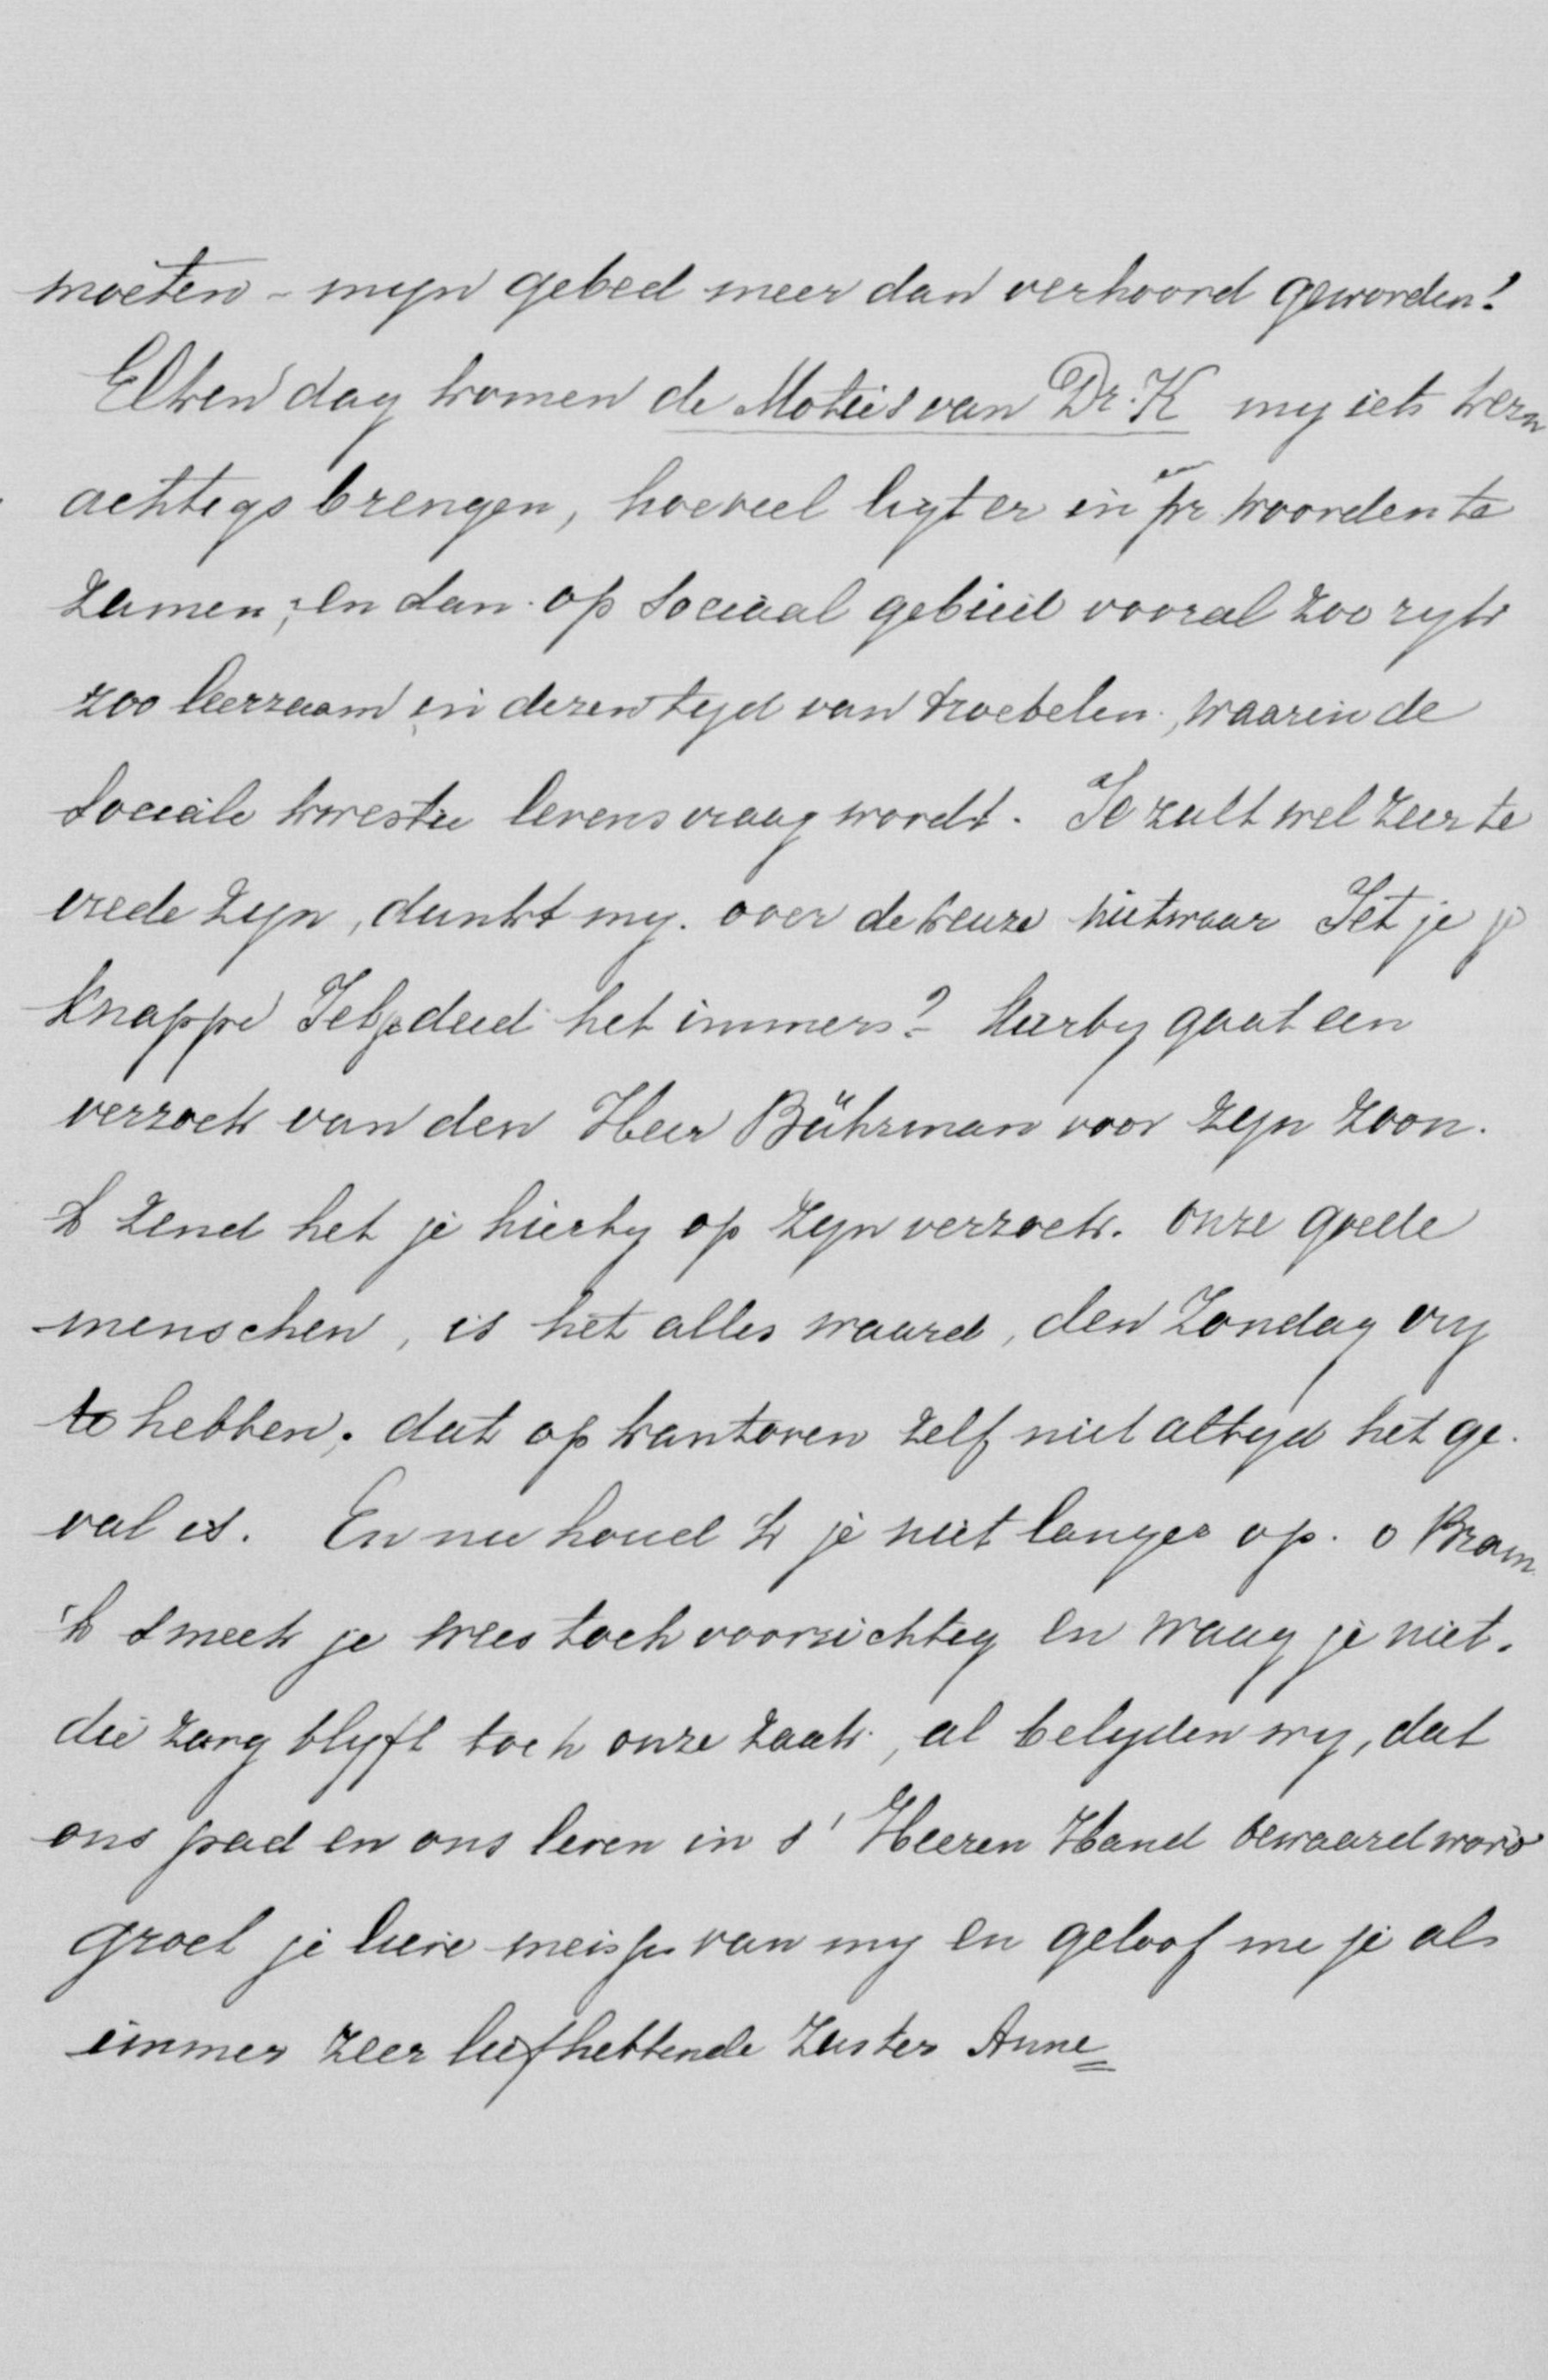 moeten - mijn gebed meer dan verhoord geworden!
Elken dag komen de Motieis van Dr. K mij iets kern
achtigs brengen, hoeveel ligt er in een pr woorden te
zamen, en dan op sociaal gebied vooral zoo rijk
zoo leerzaam in dezen tijd van troebelen, waarin de
Sociale kwestie levensvraag wordt. Je zult wel zeer te
vrede zijn, dunkt mij. over de keuze nietwaar Jetje je
knappe Jetje deed het immers? Hierbij gaat een
verzoek van den Heer Bührman voor zijn zoon.
k zend het je hierby op zijn verzoek. onze goede
menschen, is het alles waard, den Zondag vrij
te hebben, dat op kantoren zelf niet altijd het ge-
val is. En nu houd k je niet langer op. o Bram
'k smeek je wees toch voorzichtig en waag je niet.
die zorg blijft toch onze zaak, al belijden wij, dat
ons pad en ons leven in s' Heeren Hand bewaard word
groet je lieve meisjes van mij en geloof me je als
immer zeer liefhebbende Zuster Anne